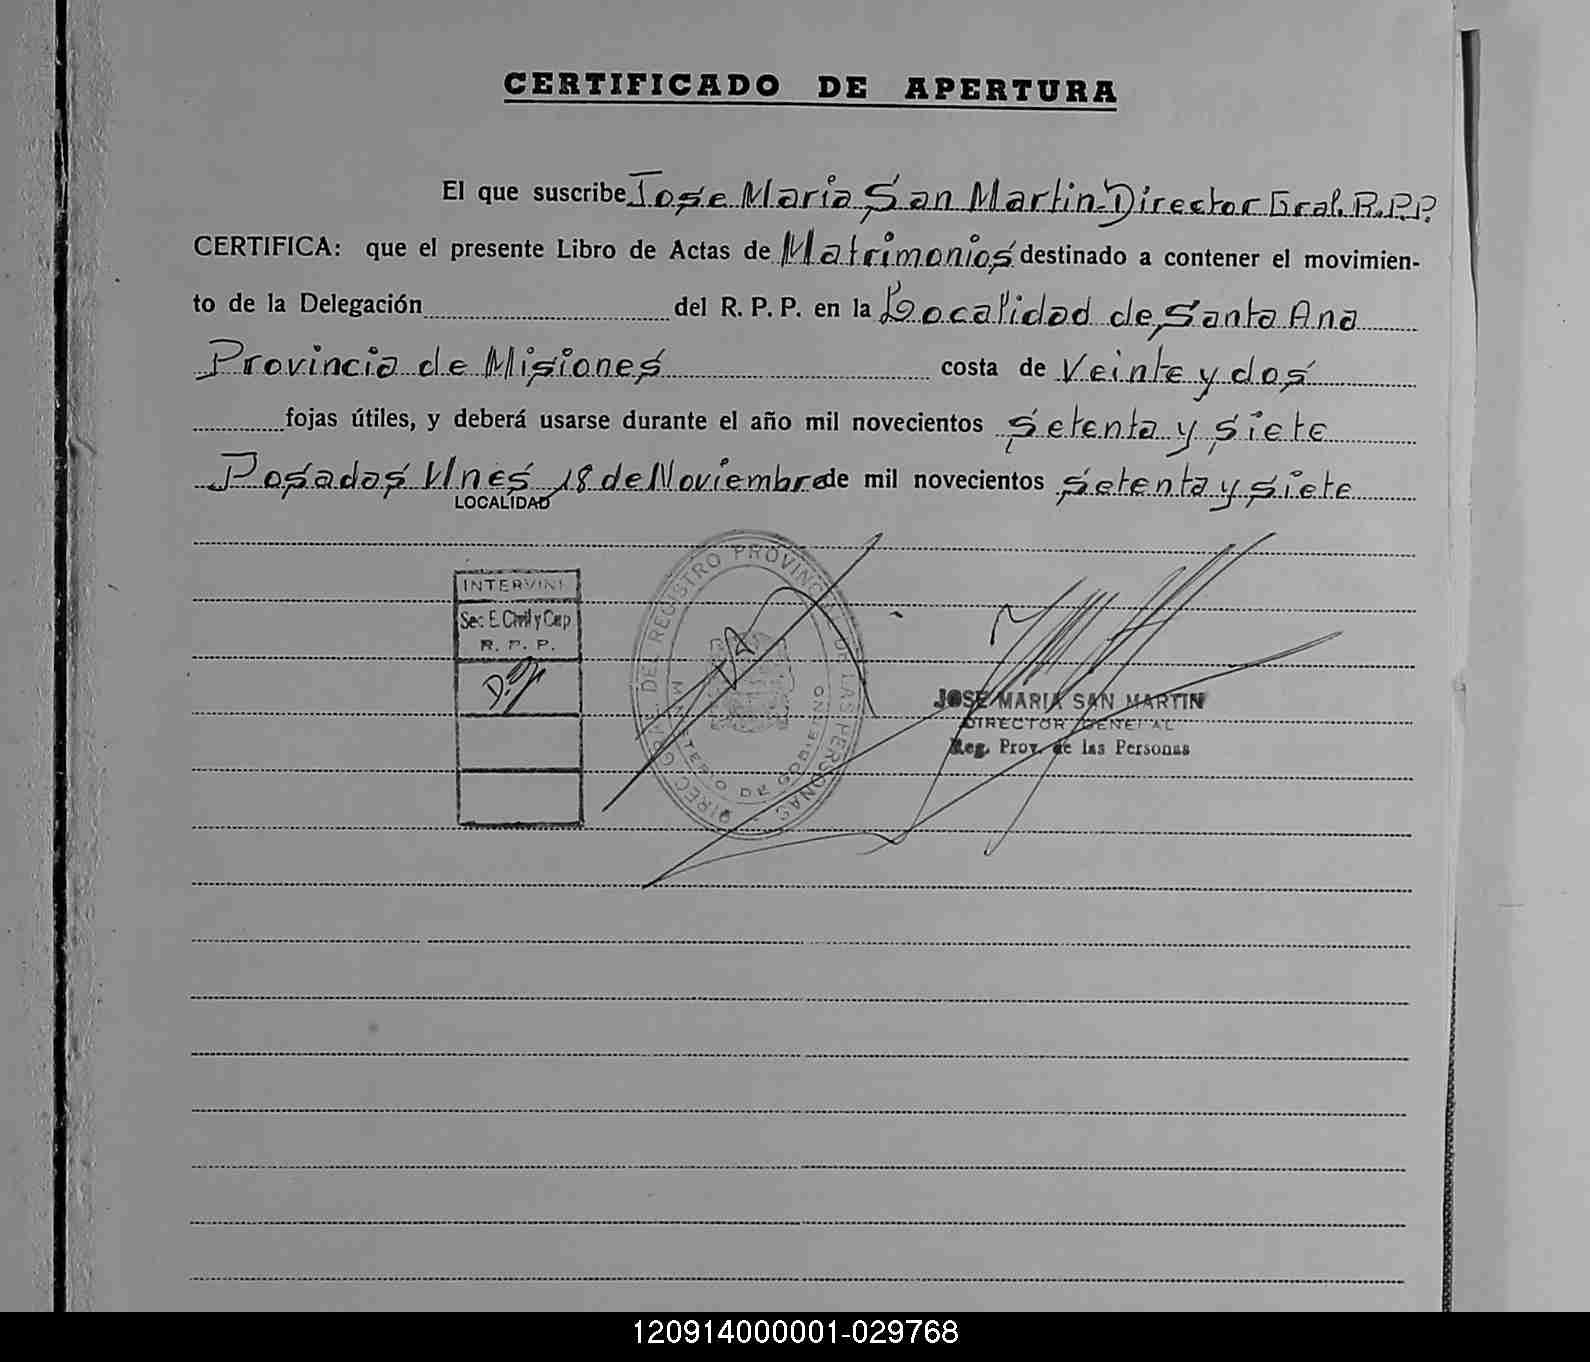 CERTIFICADO DE APERTURA
El que suscribe Jose Maria San Martin-Director Gral. R.P.P.
CERTIFICA: que el presente Libro de Actas de Matrimonios destinado a contener el movimien-
to de la Delegación del R. P. P. en la Localidad de Santa Ana
Provincia de Misiones costa de Veinte y dos
fojas útiles, y deberá usarse durante el año mil novecientos setenta y siete
Posadas Mnes 18 de Noviembre de mil novecientos setenta y siete
LOCALIDAD
INTERVINO
Sec. E. Civil y Cap
R. P. P.
DIREC. GRAL. DEL REGISTRO PROVINCIAL DE LAS PERSONAS
MINISTERIO DE GOBIERNO
JOSE MARIA SAN MARTIN
DIRECTOR GENERAL
Reg. Prov. de las Personas
120914000001-029768